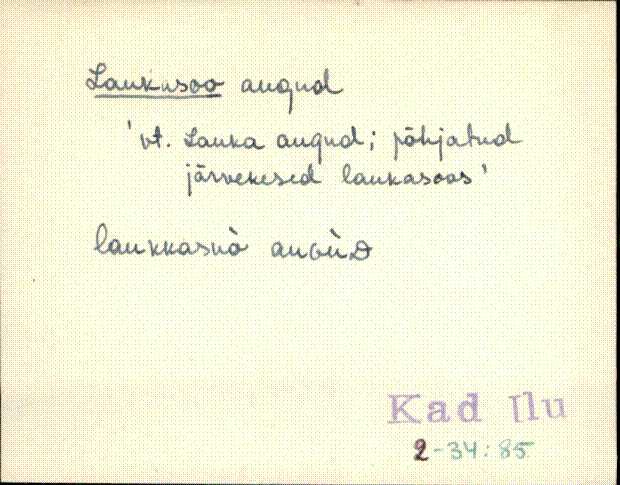 Laukasoo augud
'vt. Lauka augud; põhjatud
järvekesed laukasoos'
laukkasùo
Kad Ilu
2-34:85